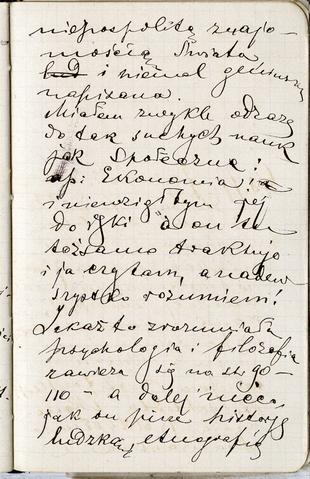 niepospolitą znajo-
mością Świata
i niemal genialnie
napisana.
Miałem zwykle odrazę
do tak suchych nauk
jak Społeczne:
np: Ekonomia i
i niewziąłbym jej
do ręki a on tu
tożsamo traktuje
i ja czytam, a nadew
szystko rozumiem!
Jakaż to zrozumiała
psychologia i filozofia
zawiera się na str. 90-
110 - a dalej nieco,
jak on pisze historyę
ludzką, etnografię